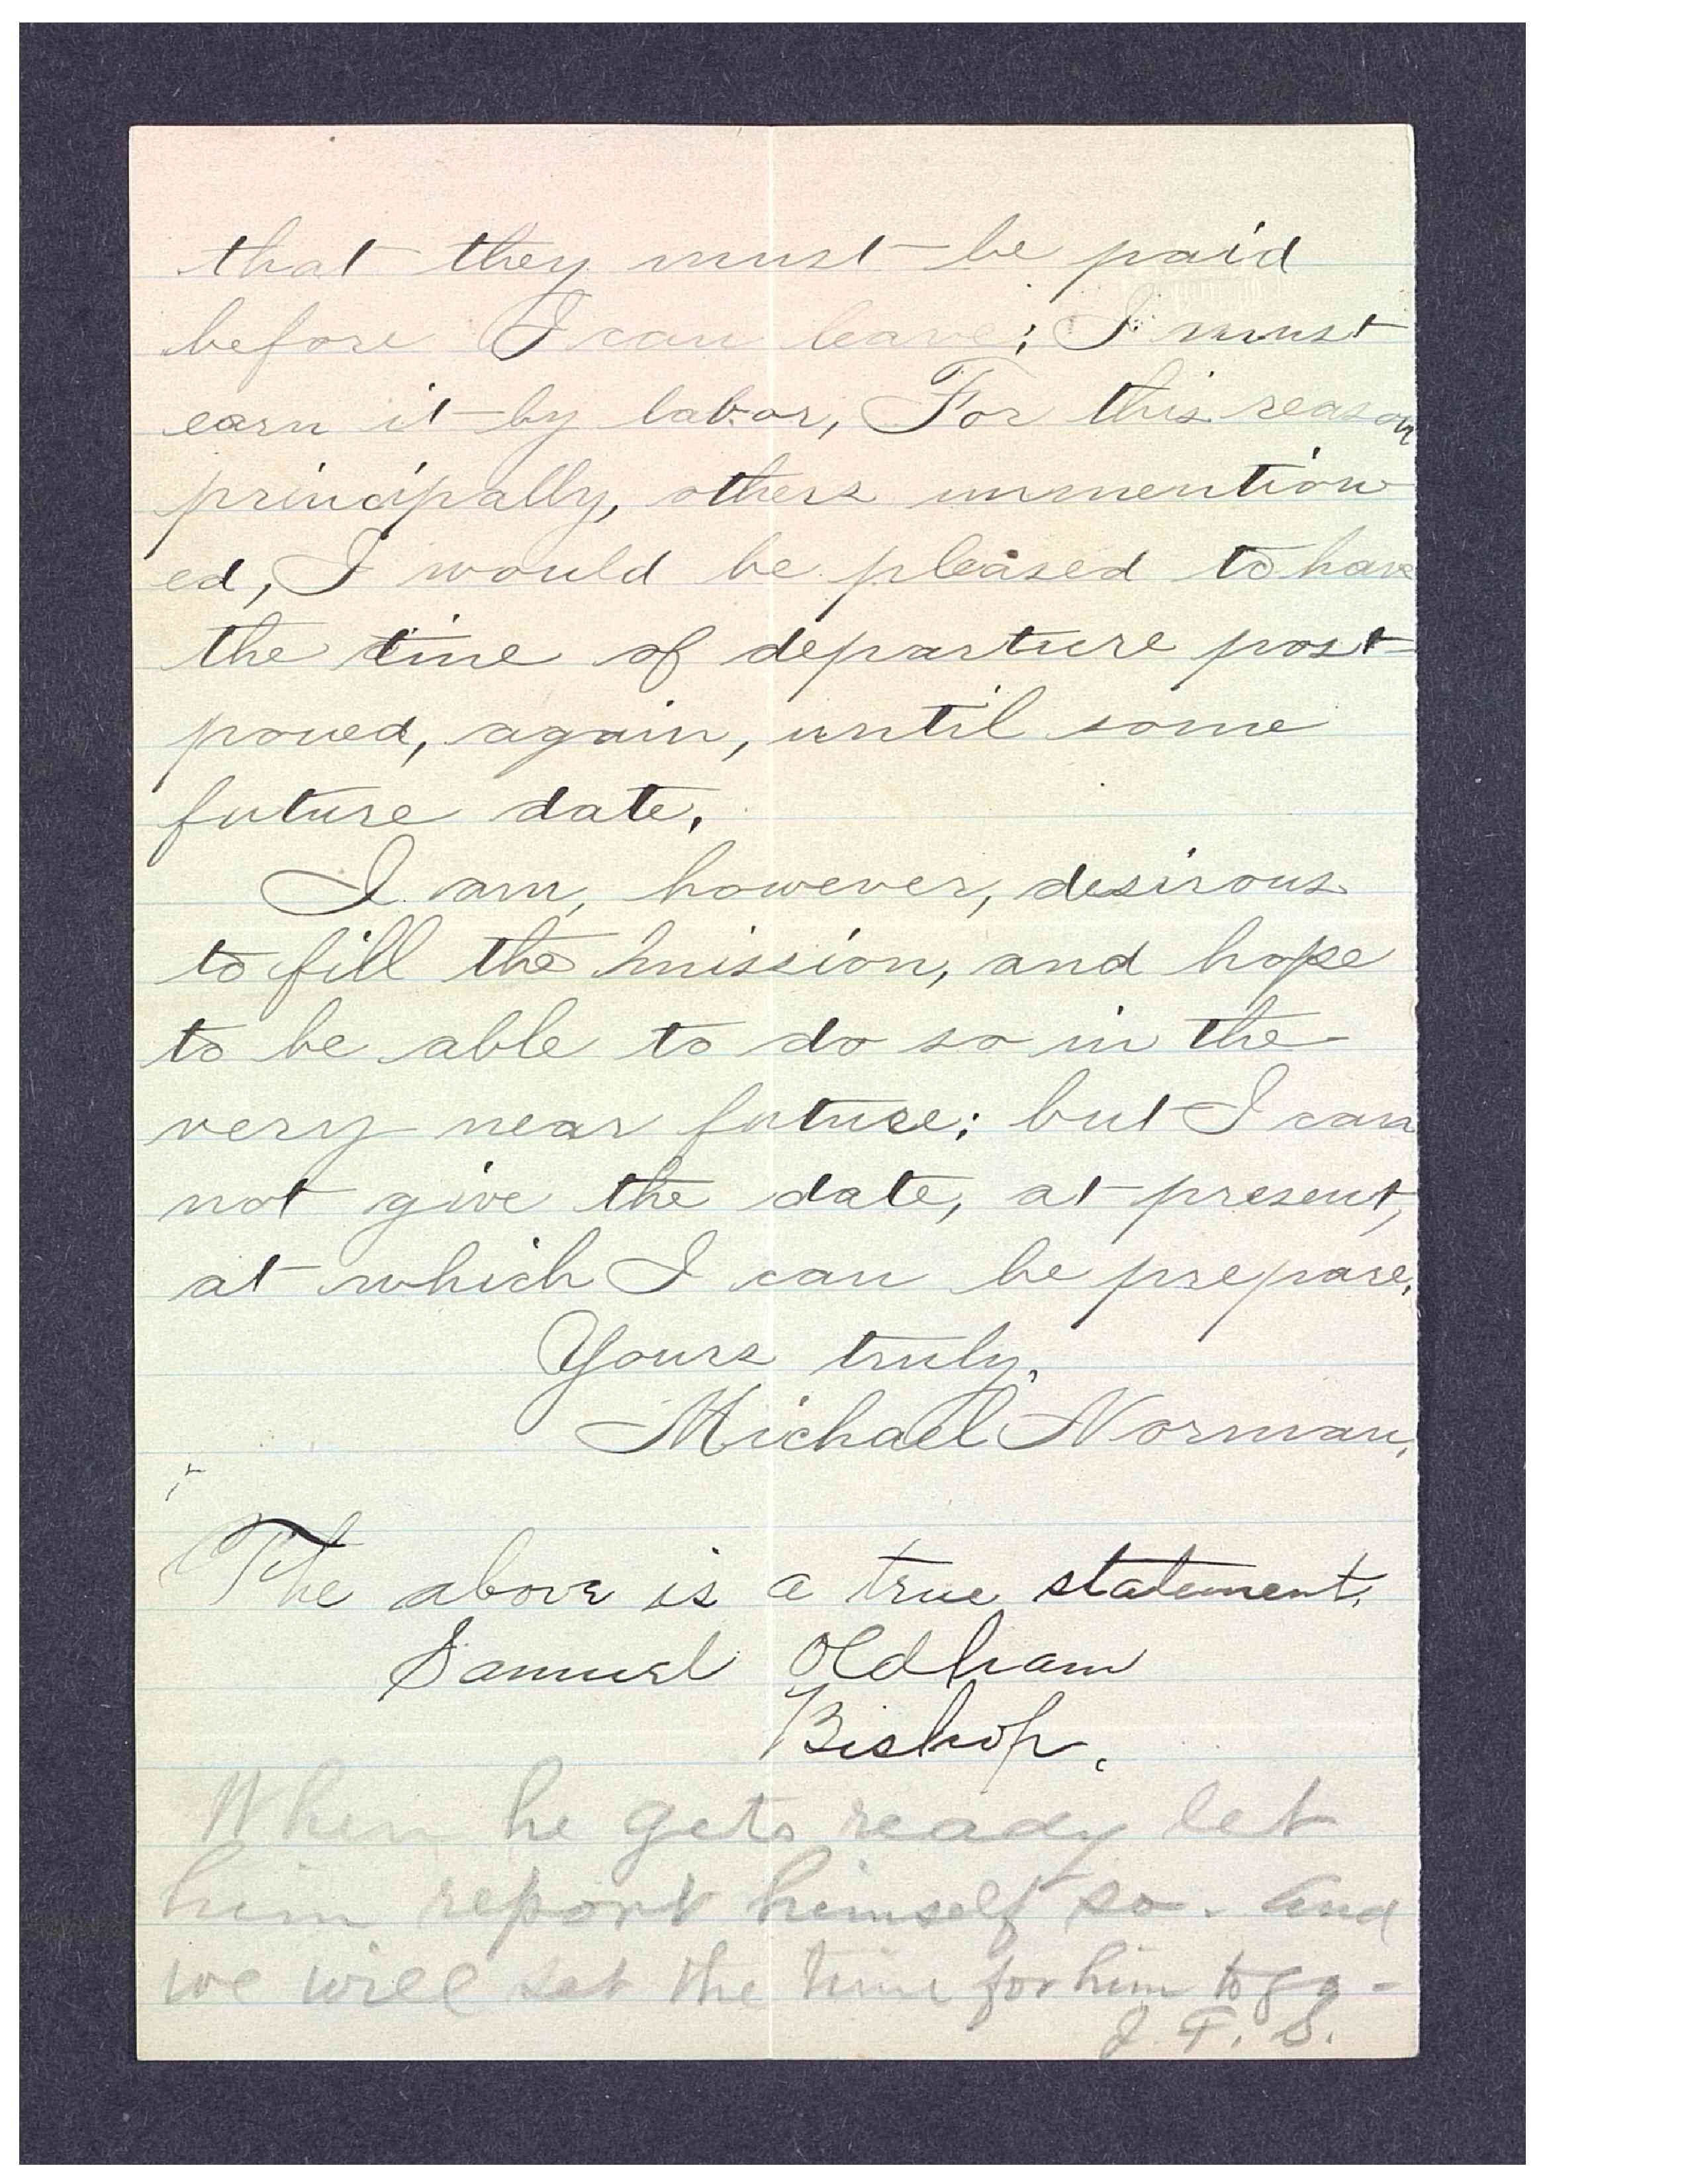 that they must be paid
before I can leave; I must
earn it by labor, For this reason
principally, others unmention
ed, I would be pleased to have
the time of departure post-
poned, again, until some
future date.
I am, however, desirous
to fill the mission, and hope
to be able to do so in the
very near future; but I can
not give the date, at present,
at which I can be prepare.
Yours truly,
Michael Norman.
The above is a true statement.
Samuel Oldham
Bishop.
When he gets ready let
him report himself so. and
we will set the time for him to go-
J. F. S.